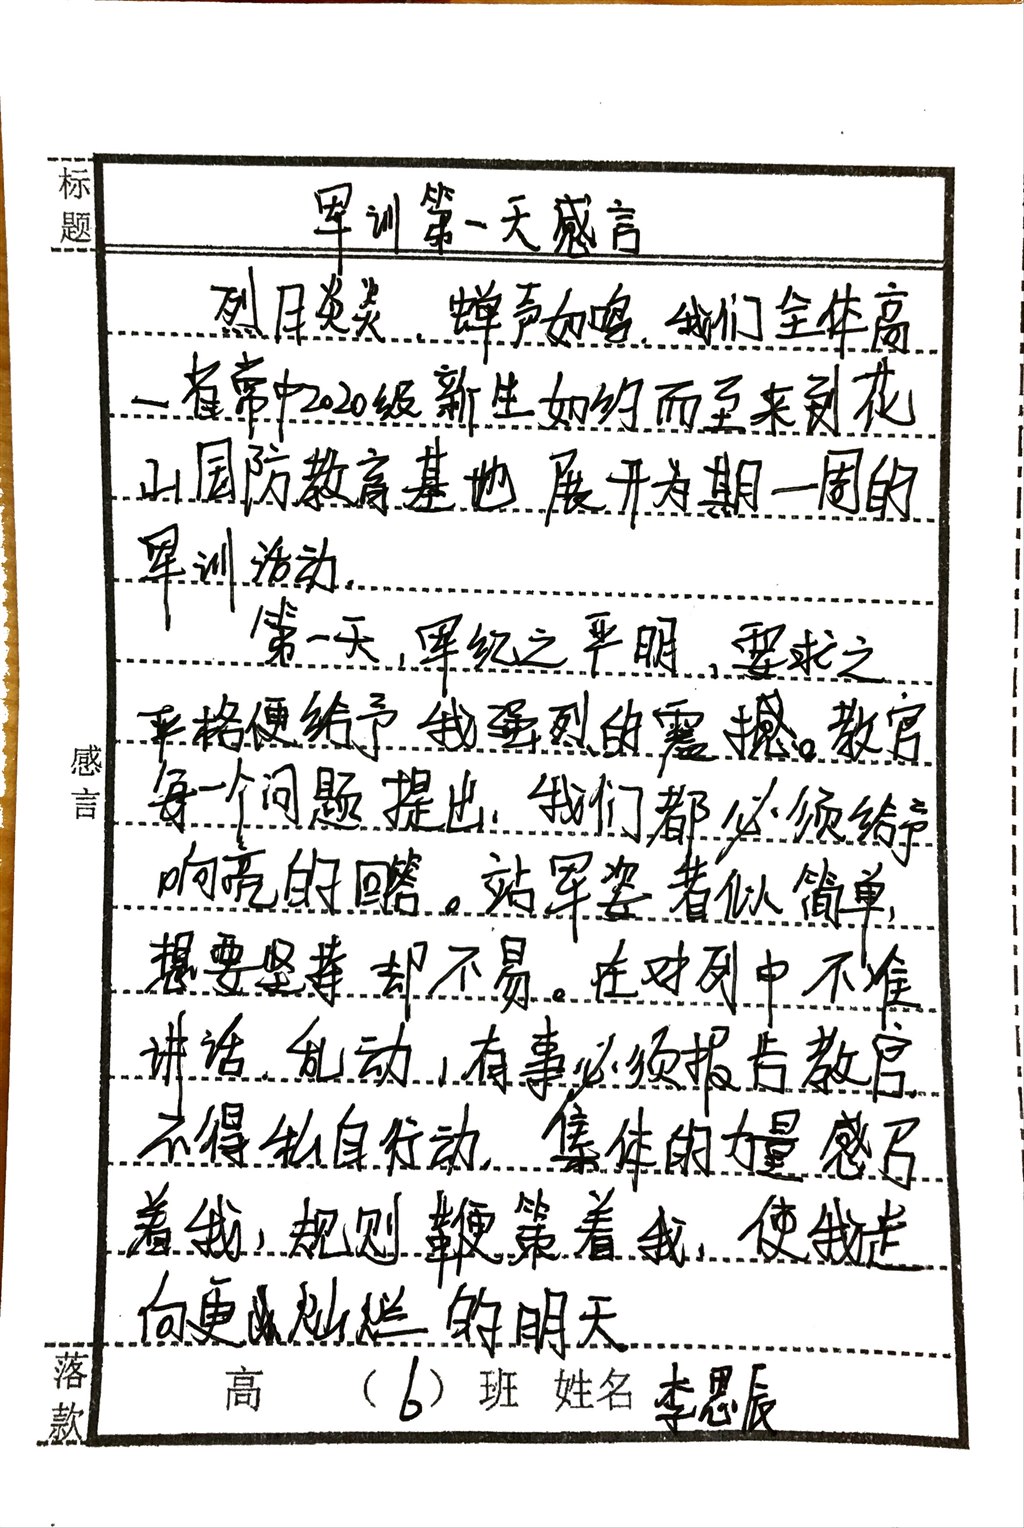 标题
军训第一天感言
烈日炎炎，蝉声如鸣，我们全体高
一省常中2020级新生如约而至来到花
山国防教育基地 展开为期一周的
军训活动。
第一天，军纪之严明，要求之
严格便给予我强烈的震撼。教官
每一个问题提出，我们都必须给予
响亮的回答。站军姿看似简单，
想要坚持却不易。在对列中不准
讲话，乱动，有事必须报告教官，
不得私自行动，集体的力量感召
着我，规则鞭策着我，使我走
向更灿烂的明天
感言
落款
高 （6）班 姓名 李思辰